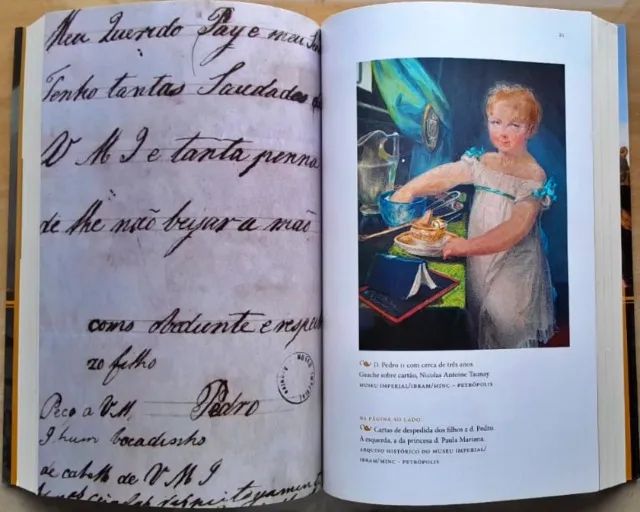 Meu Querido Pay e meu
Tenho tantas Saudades
V M I e tanta penna
de lhe não beijar a mão
como obediente e respei
zo filho
Pedro
Peco a V M I
I hum bocadinho
de cabello de V M I
31
D. Pedro II com cerca de três anos
Guache sobre cartão, Nicolas Antoine Taunay
MUSEU IMPERIAL/IBRAM/MINC – PETRÓPOLIS
NA PÁGINA AO LADO
Cartas de despedida dos filhos a d. Pedro.
À esquerda, a da princesa d. Paula Mariana.
ARQUIVO HISTÓRICO DO MUSEU IMPERIAL/
IBRAM/MINC – PETRÓPOLIS